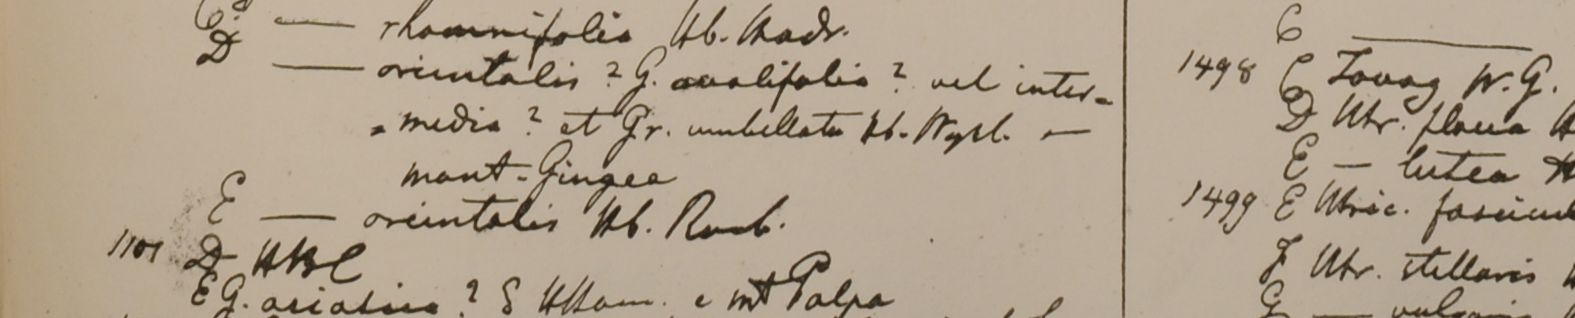 C — rhamnifolia Hb. Madr.
D — orientalis ? G. ovalifolia ? vel inter=
=media ? et Gr. umbellata Hb. Wall. —
mont-Gingee
E — orientalis Hb. Roxb.
1101 D HBC
E G. asiatica ? S HHam. e mt Palpa
C —
1498 C W. G.
D Utr. flava
E — lutea
1499 E Utric.
F Utr. stellaris
G — vulgaris